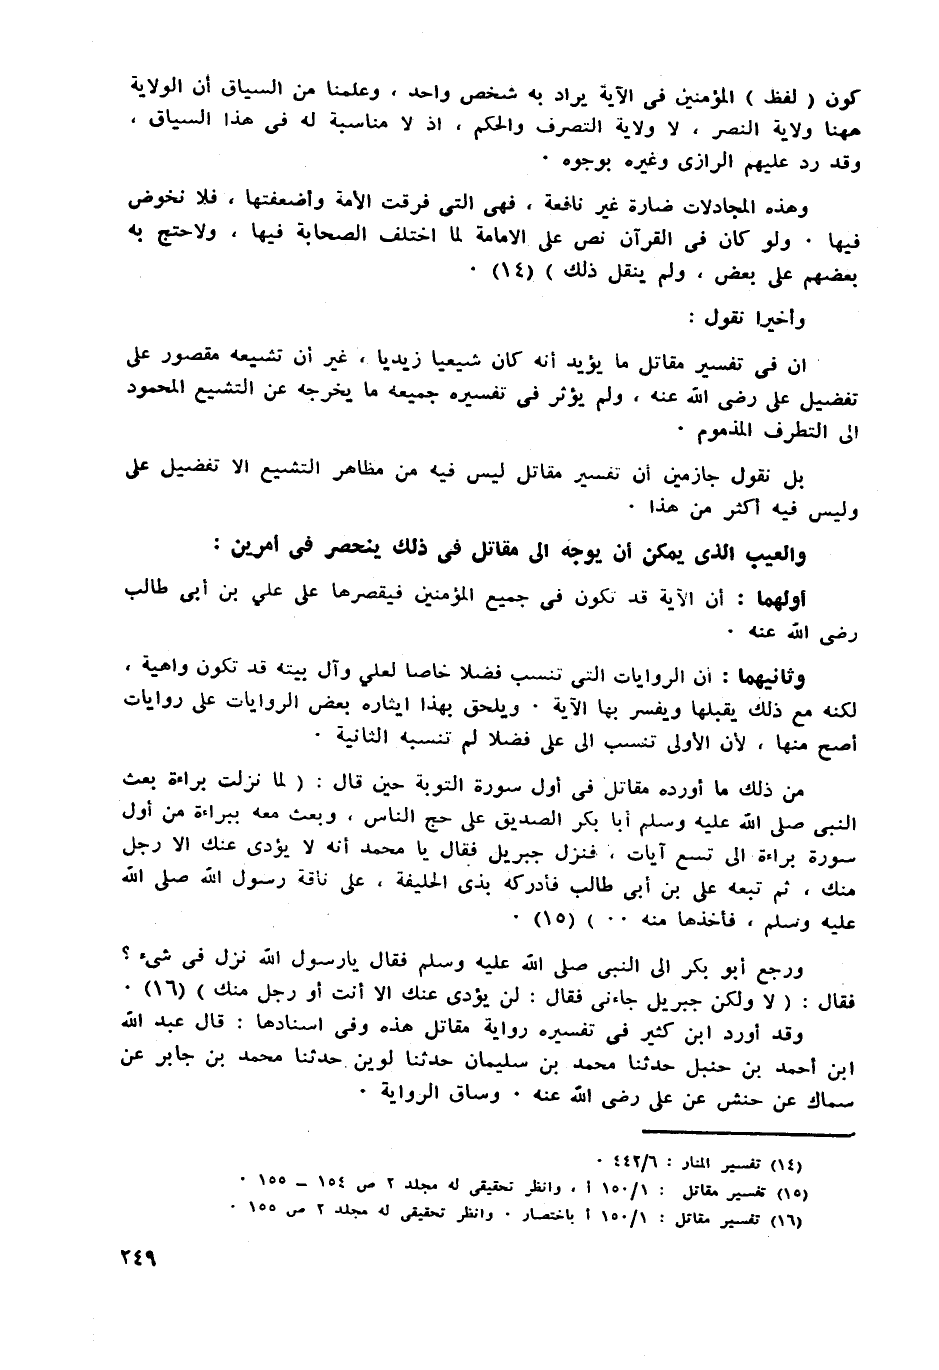 كون ( لفظ ) المؤمنين فى الآية يراد به شخص واحد ، وعلمنا من السياق أن الولاية
ههنا ولاية النصر ، لا ولاية التصرف والحكم ، اذ لا مناسبة له فى هذا السياق ،
وقد رد عليهم الرازى وغيره بوجوه ٠
وهذه المجادلات ضارة غير نافعة ، فهى التى فرقت الأمة وأضعفتها ، فلا نخوض
فيها ٠ ولو كان فى القرآن نص على الامامة لما اختلف الصحابة فيها ، ولاحتج به
بعضهم على بعض ، ولم ينقل ذلك ) (١٤) ٠
وأخيرا نقول :
ان فى تفسير مقاتل ما يؤيد أنه كان شيعيا زيديا ، غير أن تشيعه مقصور على
تفضيل على رضى الله عنه ، ولم يؤثر فى تفسيره جميعه ما يخرجه عن التشيع المحمود
الى التطرف المذموم ٠
بل نقول جازمين أن تفسير مقاتل ليس فيه من مظاهر التشيع الا تفضيل على
وليس فيه أكثر من هذا ٠
والعيب الذى يمكن أن يوجه الى مقاتل فى ذلك ينحصر فى أمرين :
أولهما : أن الآية قد تكون فى جميع المؤمنين فيقصرها على علي بن أبى طالب
رضى الله عنه ٠
وثانيهما : أن الروايات التى تنسب فضلا خاصا لعلي وآل بيته قد تكون واهية ،
لكنه مع ذلك يقبلها ويفسر بها الآية ٠ ويلحق بهذا ايثاره بعض الروايات على روايات
أصح منها ، لأن الأولى تنسب الى على فضلا لم تنسبه الثانية ٠
من ذلك ما أورده مقاتل فى أول سورة التوبة حين قال : ( لما نزلت براءة بعث
النبى صلى الله عليه وسلم أبا بكر الصديق على حج الناس ، وبعث معه ببراءة من أول
سورة براءة الى تسع آيات ، فنزل جبريل فقال يا محمد أنه لا يؤدى عنك الا رجل
منك ، ثم تبعه على بن أبى طالب فأدركه بذى الحليفة ، على ناقة رسول الله صلى الله
عليه وسلم ، فأخذها منه ٠٠ ) (١٥) ٠
ورجع أبو بكر الى النبى صلى الله عليه وسلم فقال يارسول الله نزل فى شىء ؟
فقال : ( لا ولكن جبريل جاءنى فقال : لن يؤدى عنك الا أنت أو رجل منك ) (١٦) ٠
وقد أورد ابن كثير فى تفسيره رواية مقاتل هذه وفى اسنادها : قال عبد الله
ابن أحمد بن حنبل حدثنا محمد بن سليمان حدثنا لوين حدثنا محمد بن جابر عن
سماك عن حنش عن على رضى الله عنه ٠ وساق الرواية ٠
(١٤) تفسير المنار : ٤٤٢/٦ ٠
(١٥) تفسير مقاتل : ١٥٠/١ أ ، وانظر تحقيقى له مجلد ٢ ص ١٥٤ ــ ١٥٥ ٠
(١٦) تفسير مقاتل : ١٥٠/١ أ باختصار ٠ وانظر تحقيقى له مجلد ٢ ص ١٥٥ ٠
٢٤٩